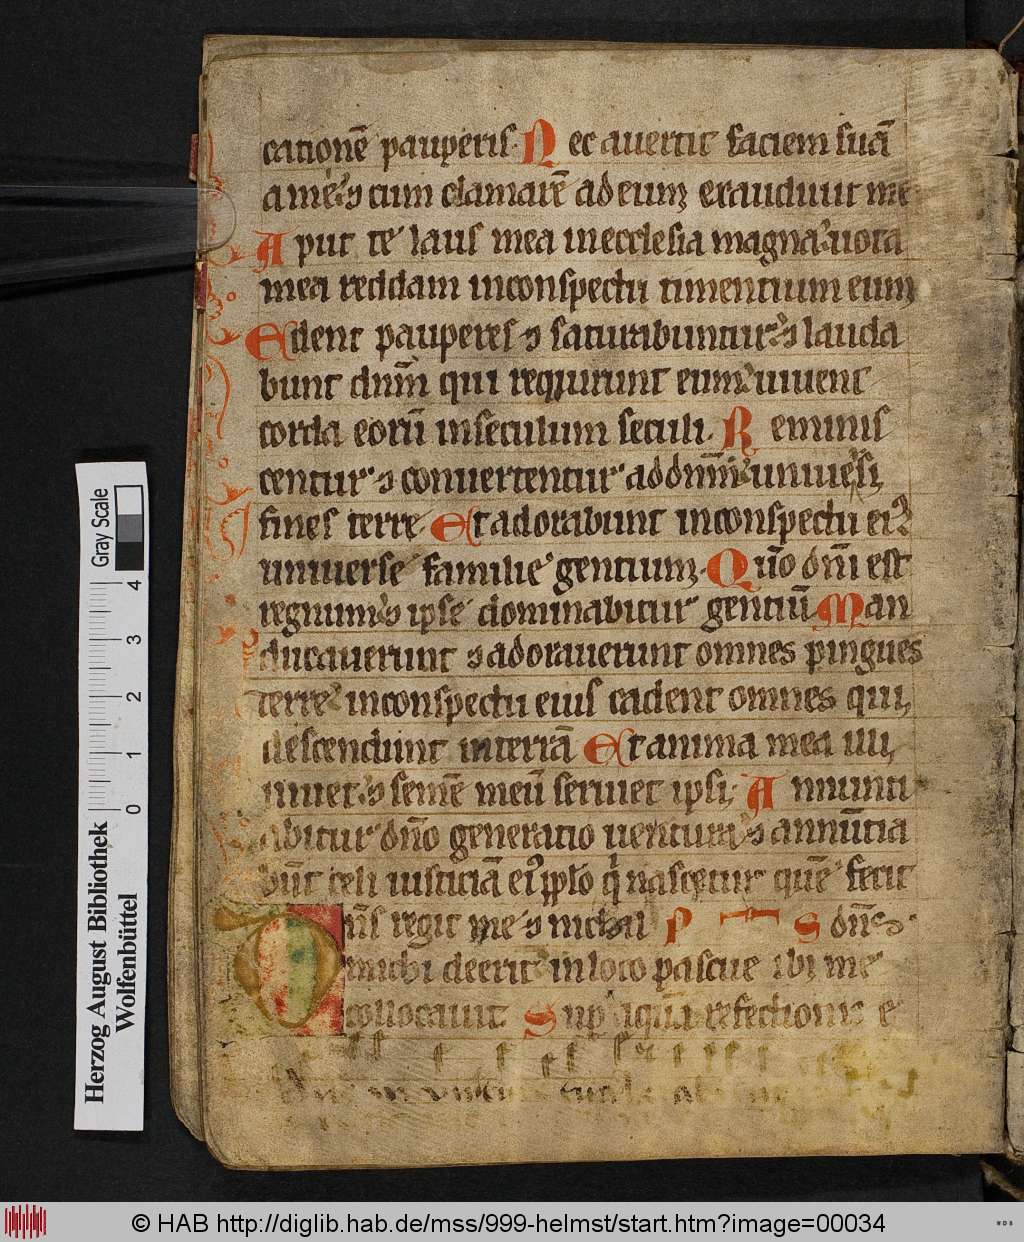 cationē pauperis. Nec auertit faciem suā
a me. & cum clamarē ad eum exaudiuit me
Aput te laus mea in ecclesia magna. uota
mea reddam in conspectu timentium eum
Edent pauperes & saturabuntur. & lauda
bunt dnm̄ qui requirunt eum. uiuent
corda eorū in seculum seculi. Reminis
centur & conuertentur ad dnm̄. uniuersi
fines terre Et adorabunt in conspectu ei᷒
uniuerse familie gentium. Quō dnī est
regnum. & ipse dominabitur gentiū Man
ducauerunt & adorauerunt omnes pingues
terre. in conspectu eius cadent omnes qui
descendunt in terrā Et anima mea illi
uiuet. & semē meū seruiet ipsi. Annunti
abitur dnō generatio uentura. & annūtia
būt celi iusticiā ei᷒ pplo q nascetur quē fecit
Dnīs regit me & nichil P S dnē
michi deerit. in loco pascue ibi me
collocauit Sup aquā refectionis e
Gray Scale
4
3
2
1
0
Herzog August Bibliothek
Wolfenbüttel
© HAB http://diglib.hab.de/mss/999-helmst/start.htm?image=00034
WDB